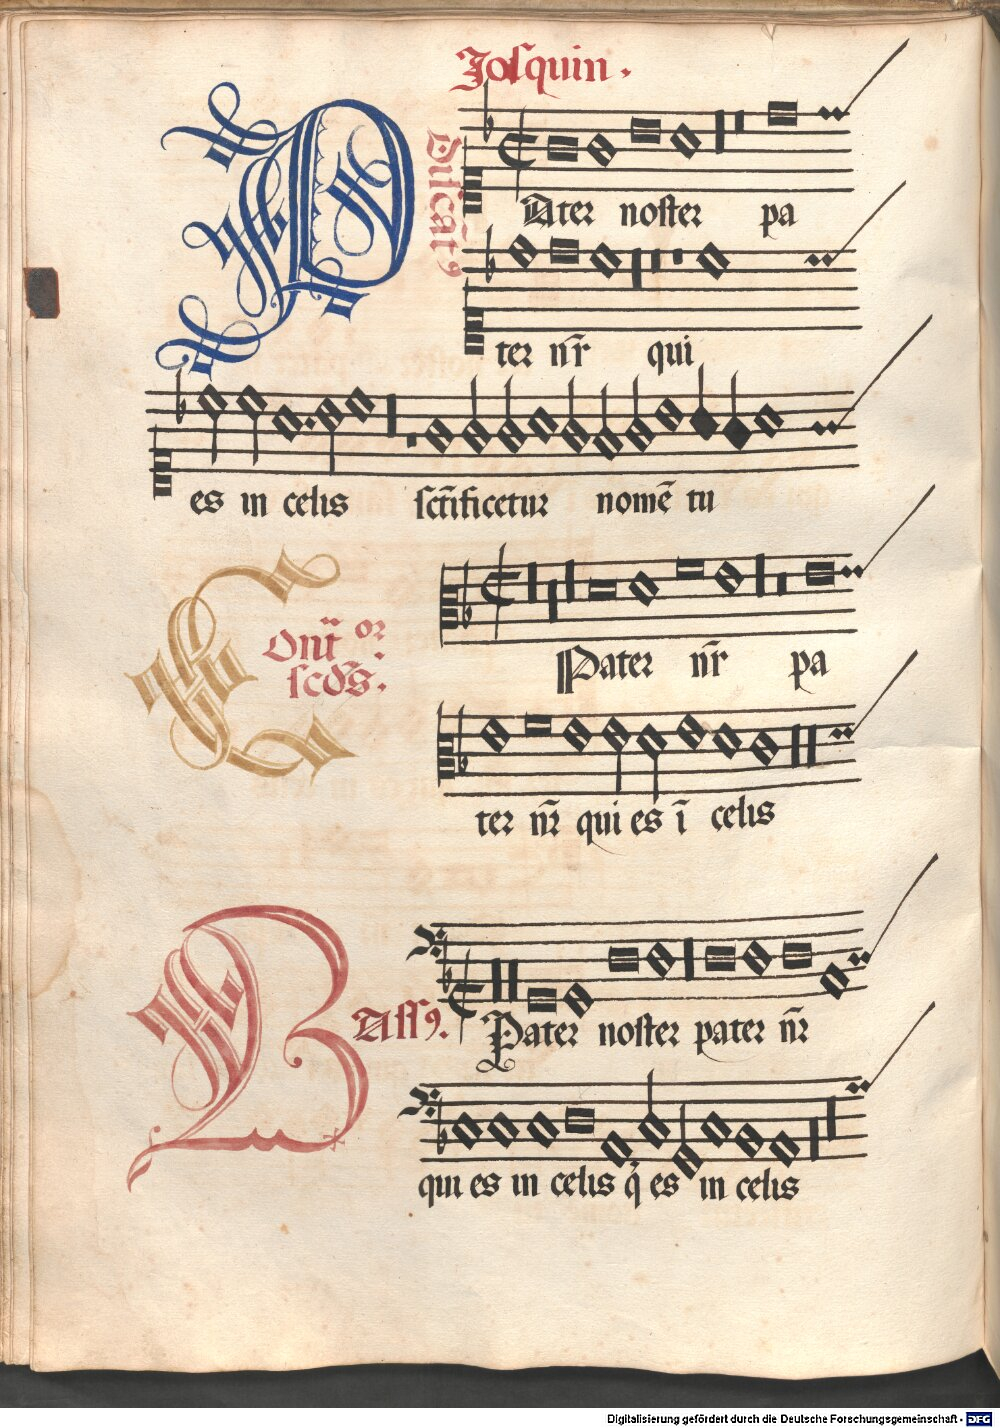 Josquin.
Discāt9
Ater noster pa
ter nr̄r qui
es in celis sct̄ificetur nomē tu
Cont̄ or
scd9s.
Pater nr̄r pa
ter nr̄ qui es ī celis
Bass9.
Pater noster pater nr̄
qui es in celis q̇ es in celis
Digitalisierung gefördert durch die Deutsche Forschungsgemeinschaft - DFG